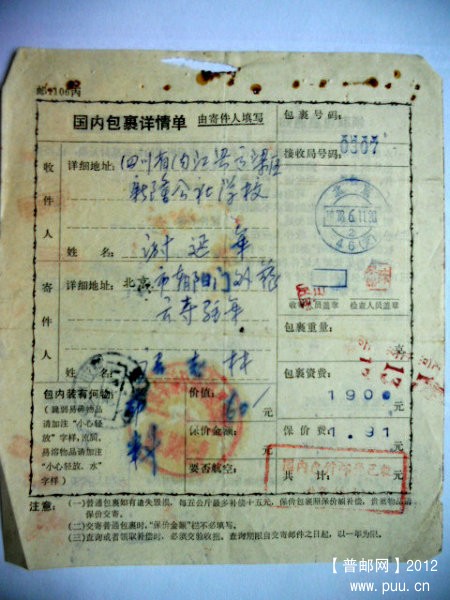 邮1106丙
国内包裹详情单 由寄件人填写
包裹号码:
接收局号码: 0307
收件人
详细地址: 四川省内江县
新隆公社学校
姓名: 谢
寄件人
详细地址: 北京市朝阳门外
姓名:
收寄人员盖章 检查人员盖章
包裹重量:
包内装有何物:
(脆弱易碎物品
请加注“小心轻
放”字样,流质、
易溶物品请加注
“小心轻放、水”
字样)
布料
价值: 60 元
保价金额: 元
要否航空:
包裹资费: 1900 元
保价费: 1.91 元
共计: 元
国内
注意: (一)普通包裹如有遗失毁损,每五公斤最多补偿十五元,保价包裹照保价额补偿,贵重物品请
保价交寄。
(二)交寄普通包裹时,“保价金额”栏不必填写。
(三)查询或者领取补偿时,必须交验收据。查询期限自交寄邮件之日起,以一年为限。
【普邮网】2012
www.puu.cn